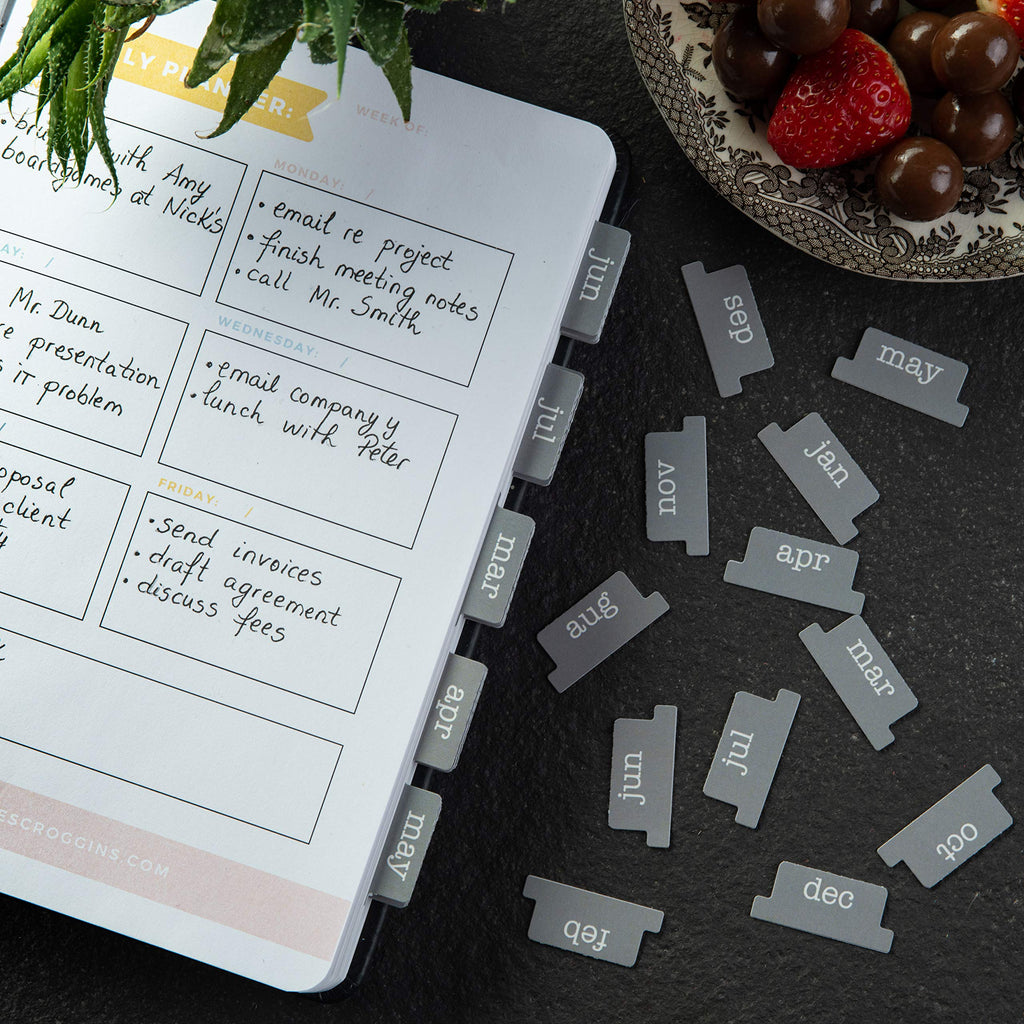 LY PLANNER:
WEEK OF:
with Amy
boardgames at Nick's
MONDAY: /
• email re project
• finish meeting notes
• call Mr. Smith
AY: /
Mr. Dunn
re presentation
s IT problem
WEDNESDAY: /
• email company y
• lunch with Peter
/
oposal
client
ty
FRIDAY: /
• send invoices
• draft agreement
• discuss fees
ESCROGGINS.COM
jun
jul
mar
apr
may
sep
may
nov
jan
apr
aug
mar
jun
jul
oct
dec
feb